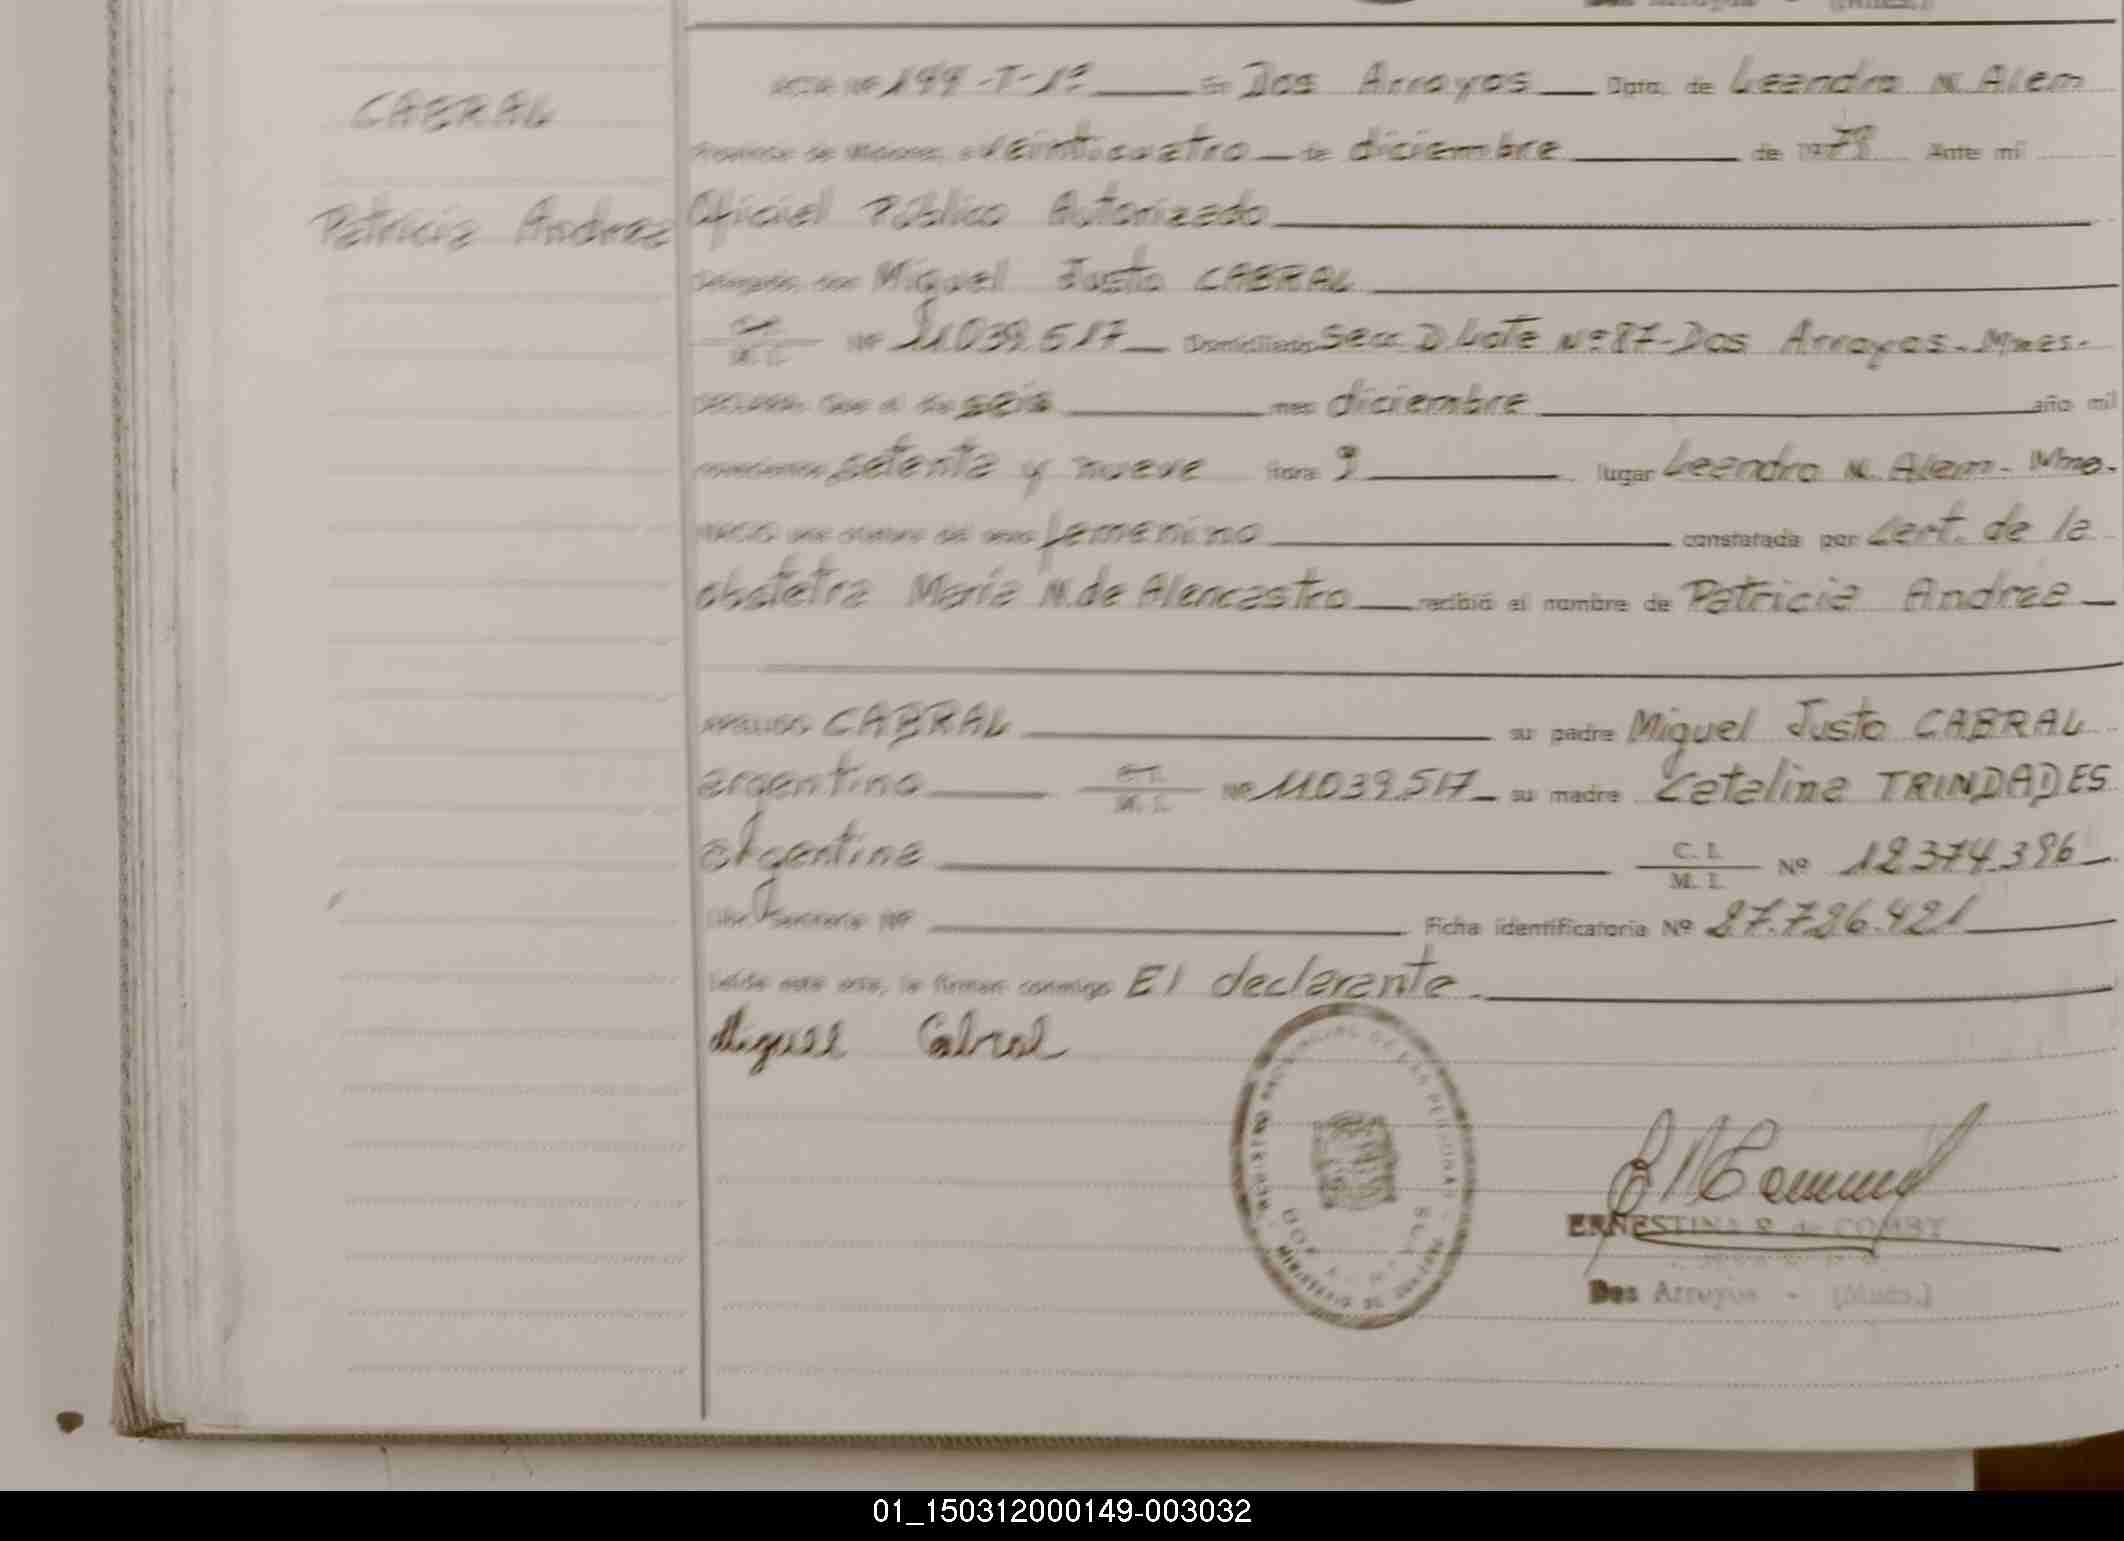 CABRAL
Patricia Andrea
ACTA Nº 199-T-1º En Dos Arroyos Dpto. de Leandro N. Alem
Provincia de Misiones, a veinticuatro de diciembre de 1979 Ante mí
Oficial Público Autorizado
Miguel Justo CABRAL
M. I. Nº 11.039.517 Domiciliado Secc. D. Lote Nº 87-Dos Arroyos-Mnes-
DECLARA: Que el día seis mes diciembre año mil
novecientos setenta y nueve hora 9 lugar Leandro N. Alem- Mnes-
NACIO una criatura del sexo femenino constatada por Cert. de la
obstetra María N. de Alencastro recibió el nombre de Patricia Andrea
APELLIDO CABRAL su padre Miguel Justo CABRAL
argentino M. I. Nº 11.039.517 su madre Catalina TRINDADES
argentina C. I. M. I. Nº 12.374.396
Nº Ficha identificatoria Nº 27.726.421
Leída esta acta, la firman conmigo El declarante
Miguel Cabral
ERNESTINA R. de COMBY
Dos Arroyos - (Mnes.)
01_150312000149-003032